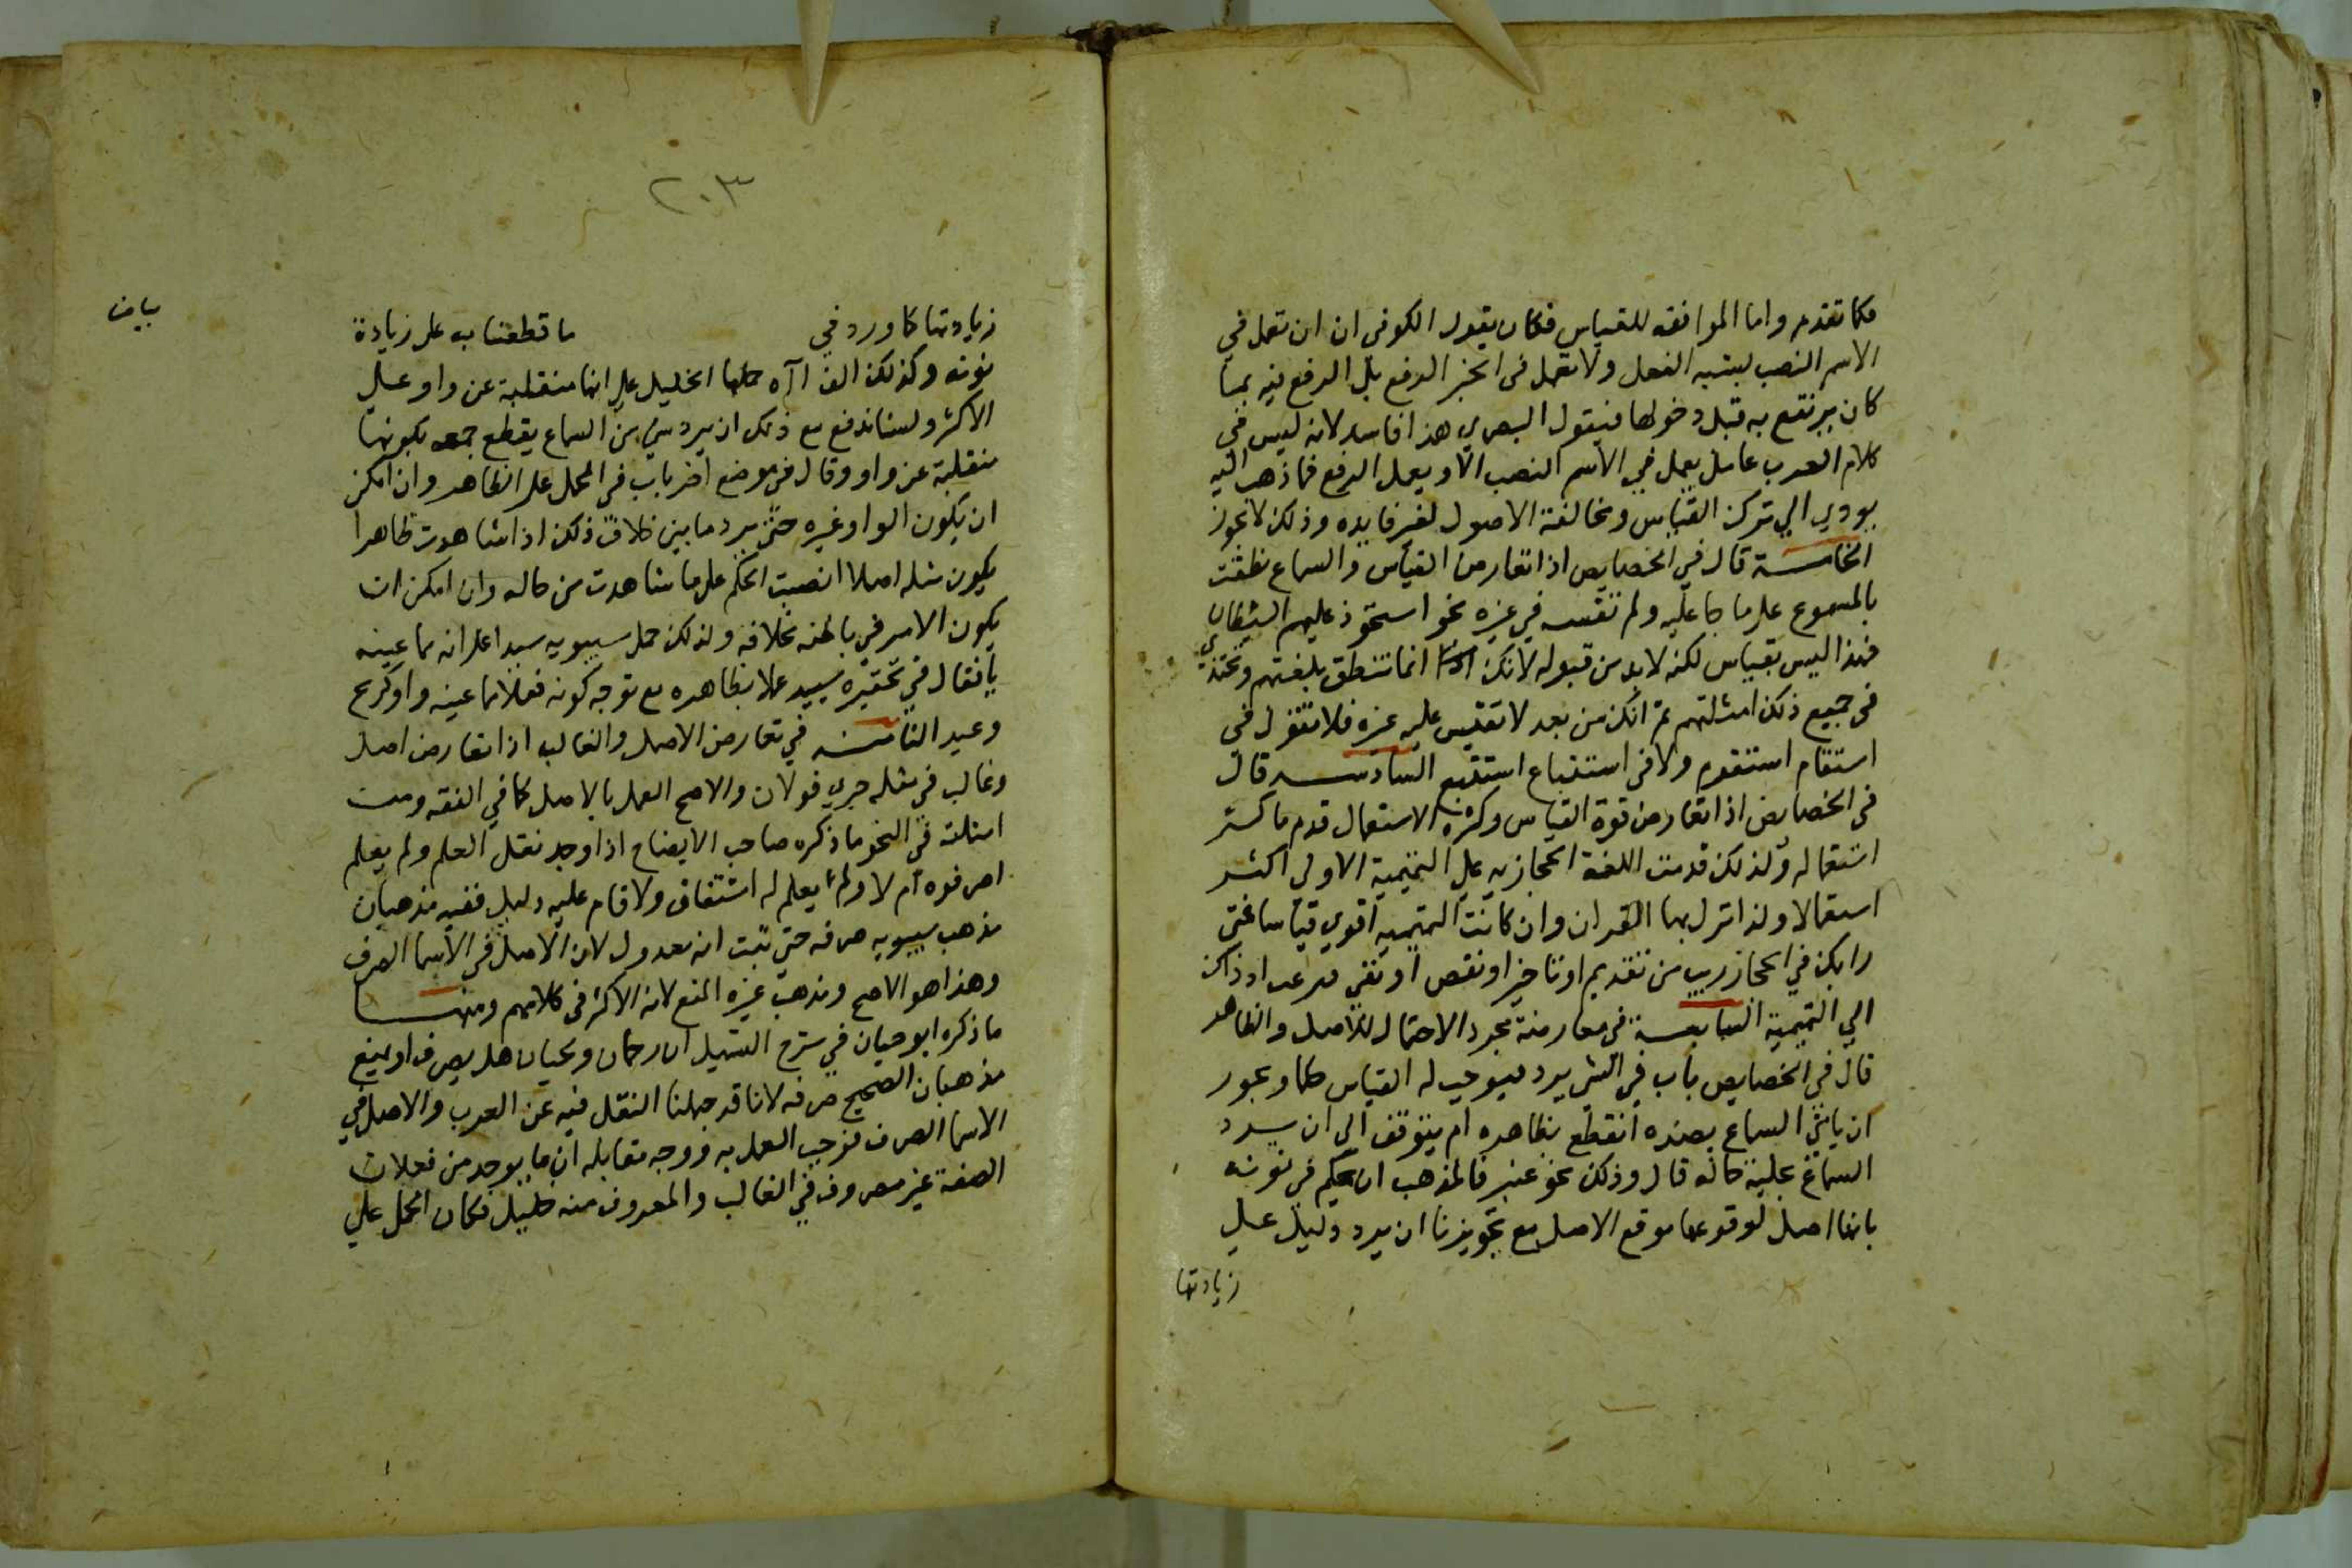 فكما تقدم واما الموافقه للقياس فكان يقول الكوفى ان ان تعمل في
الاسم النصب لشبه الفعل ولا تعمل فى الخبر الرفع بل الرفع فيه بما
كان يرتفع به قبل دخولها فيقول البصري هذا فاسد لانه ليس في
كلام العرب عامل يعمل في الاسم النصب الا ويعمل الرفع فما ذهب اليه
يودي الي ترك القياس ومخالفة الاصول لغير فايده وذلك لا يجوز
الخامسة قال في الخصايص اذا تعارض القياس والسماع نطقت
بالمسموع على ما جا عليه ولم تقسه في غيره نحو استحوذ عليهم الشيطان
فهذا ليس بقياس لكنه لا بد من قبوله لانك انما تنطق بلغتهم وتحتذي
فى جميع ذلك امثلتهم ثم انك من بعد لا تقيس عليه غيره فلا تقول فى
استقام استقوم ولا فى استباع استبيع السادسه قال
فى الخصايص اذا تعارض قوة القياس وكثرة الاستعمال قدم ما كثر
استعماله ولذلك قدمت اللغة الحجازيه علي التميمية الاولى اكثر
استعمالا ولذا نزل بها القران وان كانت التميميه اقوي قياسا فمتى
رابك في الحجازريب من تقديم او تاخير او نقض او نفي فزعت اذ ذاك
الي التميمية السابعسة فى معارضة مجرد الاحتمال للاصل والظاهر
قال في الخصايص باب في الشى يرد فيوجب له القياس حكما ويجوز
ان ياتي السماع بضده انقطع بظاهره ام يتوقف الي ان يرد
السماع بجلية حاله قال وذلك نحو عنبر فالمذهب ان يحكم في نونه
بانها اصل لوقوعها موقع الاصل مع تجويزنا ان يرد دليل علي
زيادتها
٢٠٣
زيادتها كما ورد في ما قطعنا به على زيادة
بيان
نونه وكذلك الف اآه حملها الخليل على انها منقلبة عن واو علي
الاكثر ولسنا ندفع مع ذلك ان يرد شي من السماع يقطع معه بكونها
منقلبة عن واو وقال فى موضع اخر باب فى الحمل على الظاهر وان امكن
ان يكون المراد غيره حتى يرد ما يبين خلاف ذلك اذا شاهدت ظاهرا
يكون مثله اصلا انصبت الحكم على ما شاهدت من حاله وان امكن ان
يكون الامر في باطنه بخلافه ولذلك حمل سيبويه سيدا على انه مما عينه
يا فقال في تحقيره سييد عملا بظاهره مع توجه كونه فعلا مما عينه واو كريح
وعيد الثامنه في تعارض الاصل والغالب اذا تعارض اصل
وغالب في مسئله جري قولان والاصح العمل بالاصل كما في الفقه ومن
امثلته في النحو ما ذكره صاحب الافصاح اذا وجد فعل العلم ولم يعلم
اصرفوه ام لا ولم يعلم له اشتقاق ولا قام عليه دليل ففيه مذهبان
مذهب سيبويه صرفه حتى يثبت انه معدول لان الاصل في الاسما الصرف
وهذا هو الاصح ومذهب غيره المنع لانه الاكثر فى كلامهم ومنها
ما ذكره ابو حيان في شرح التسهيل ان رحمان ولحيان هل يصرف او يمنع
مذهبان الصحيح صرفه لانا قد جهلنا النقل فيه عن العرب والاصل في
الاسما الصرف فوجب العمل به ووجه مقابله ان ما يوجد من فعلان
الصفة غير مصروف في الغالب والمصروف منه قليل فكان الحمل علي